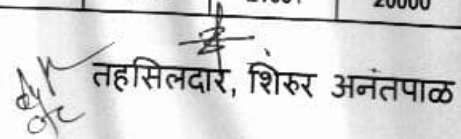 20000
तहसिलदार, शिरुर अनंतपाळ